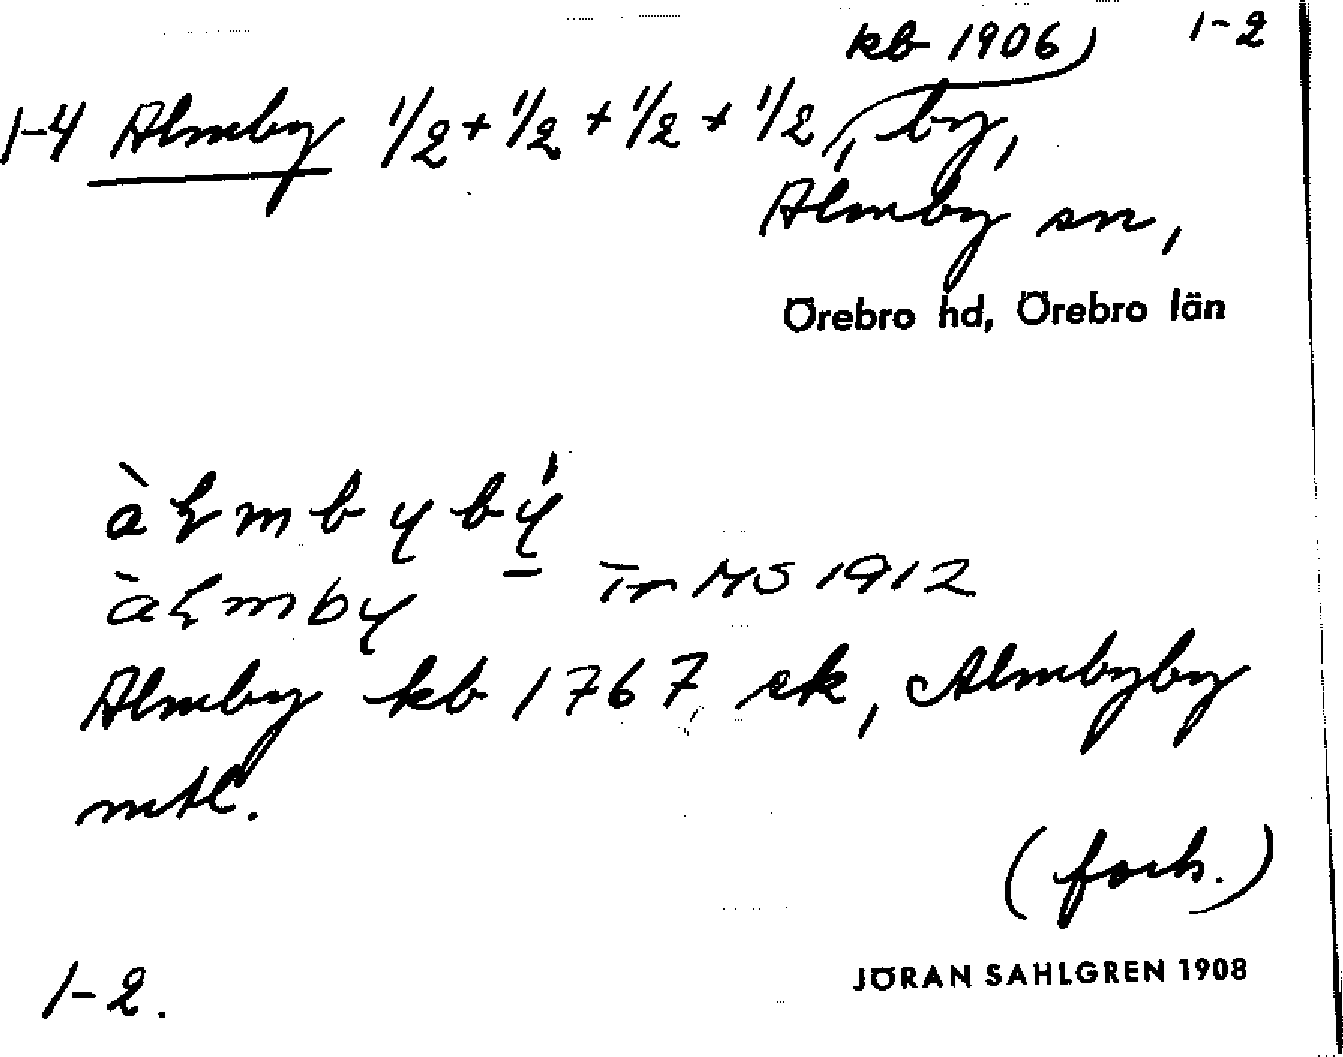 kb 1906) 1-2
1-4 Almby 1/2 + 1/2 + 1/2 + 1/2, by,
Almby sn,
Örebro hd, Örebro län
àɽmbybý
àɽmby Tr MS 1912
Almby kb 1767 ek, Almbyby
mtl.
(forts.)
1-2.
JÖRAN SAHLGREN 1908